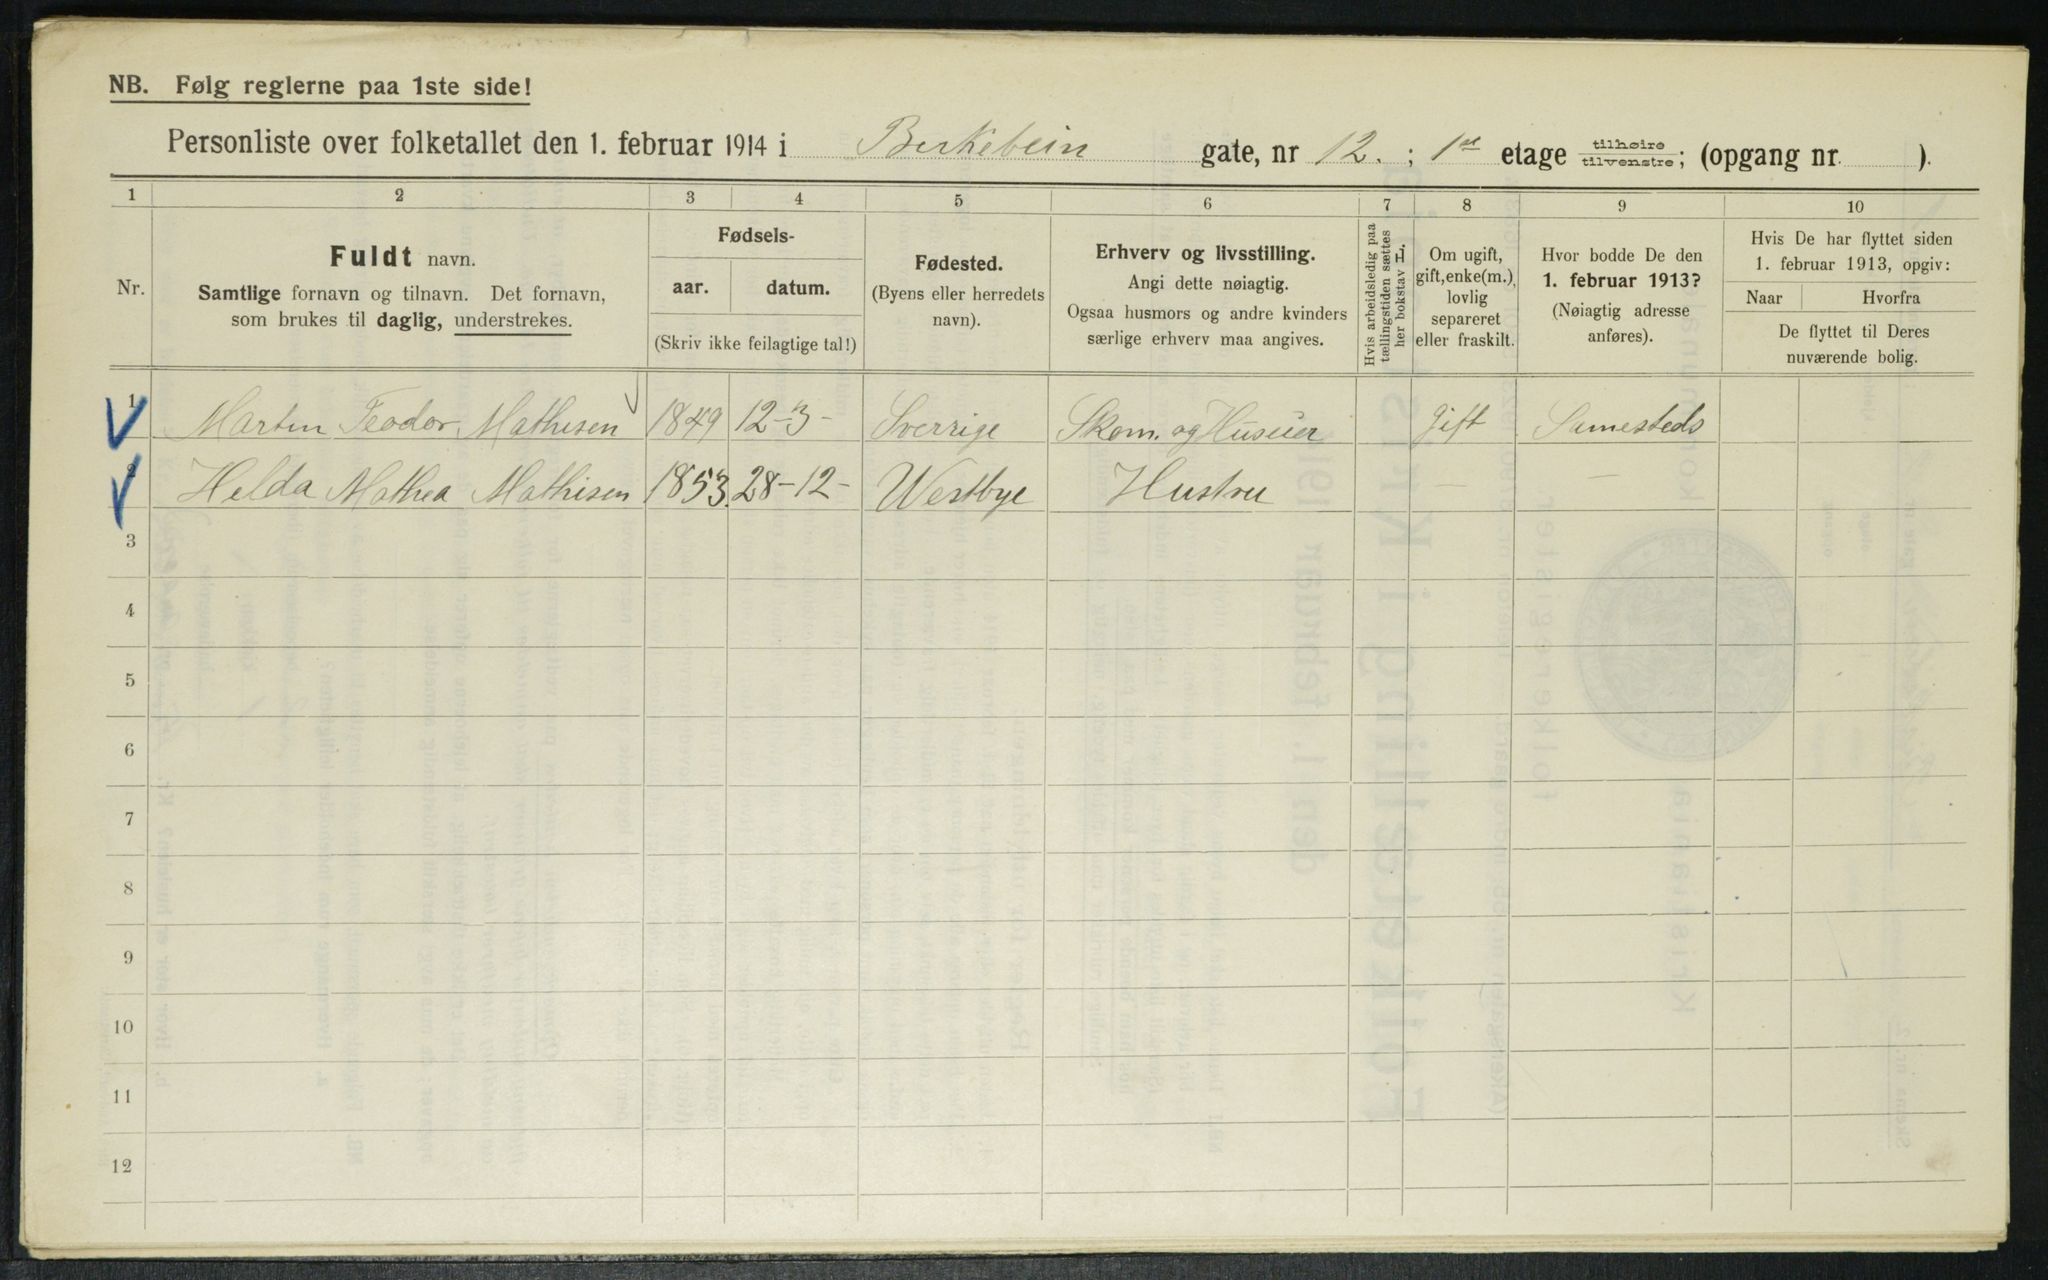 NB. Følg reglerne paa 1ste side!
Personliste over folketallet den 1. februar 1914 i Birkebein gate, nr 12. ; 1ste etage tilhøire tilvenstre; (opgang nr. ).
1 2 3 4 5 6 7 8 9 10
Nr.
Fuldt navn.
Samtlige fornavn og tilnavn. Det fornavn,
som brukes til daglig, understrekes.
Fødsels-
aar. datum.
(Skriv ikke feilagtige tal!)
Fødested.
(Byens eller herredets
navn).
Erhverv og livsstilling.
Angi dette nøiagtig.
Ogsaa husmors og andre kvinders
særlige erhverv maa angives.
Hvis arbeidsledig paa
tællingstiden sættes
her bokstav L.
Om ugift,
gift, enke(m.),
lovlig
separeret
eller fraskilt.
Hvor bodde De den
1. februar 1913?
(Nøiagtig adresse
anføres).
Hvis De har flyttet siden
1. februar 1913, opgiv:
Naar Hvorfra
De flyttet til Deres
nuværende bolig.
1 Martin Teodor Mathisen 1849 12-3- Sverrige Skom. og Huseier Gift Samesteds
2 Helda Mathea Mathisen 1853. 28-12- Westbye Hustru — —
3
4
5
6
7
8
9
10
11
12